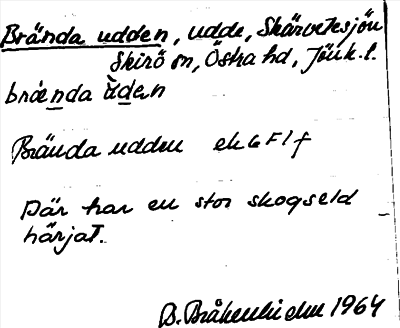 Brända udden, udde, Skärvetesjön
Skirö sn, Östra hd, Jönk. l.
brænda ùden
Brända udden ek 6 F 1 f
Där har en stor skogseld
härjat.
B. Bråkenhielm 1964